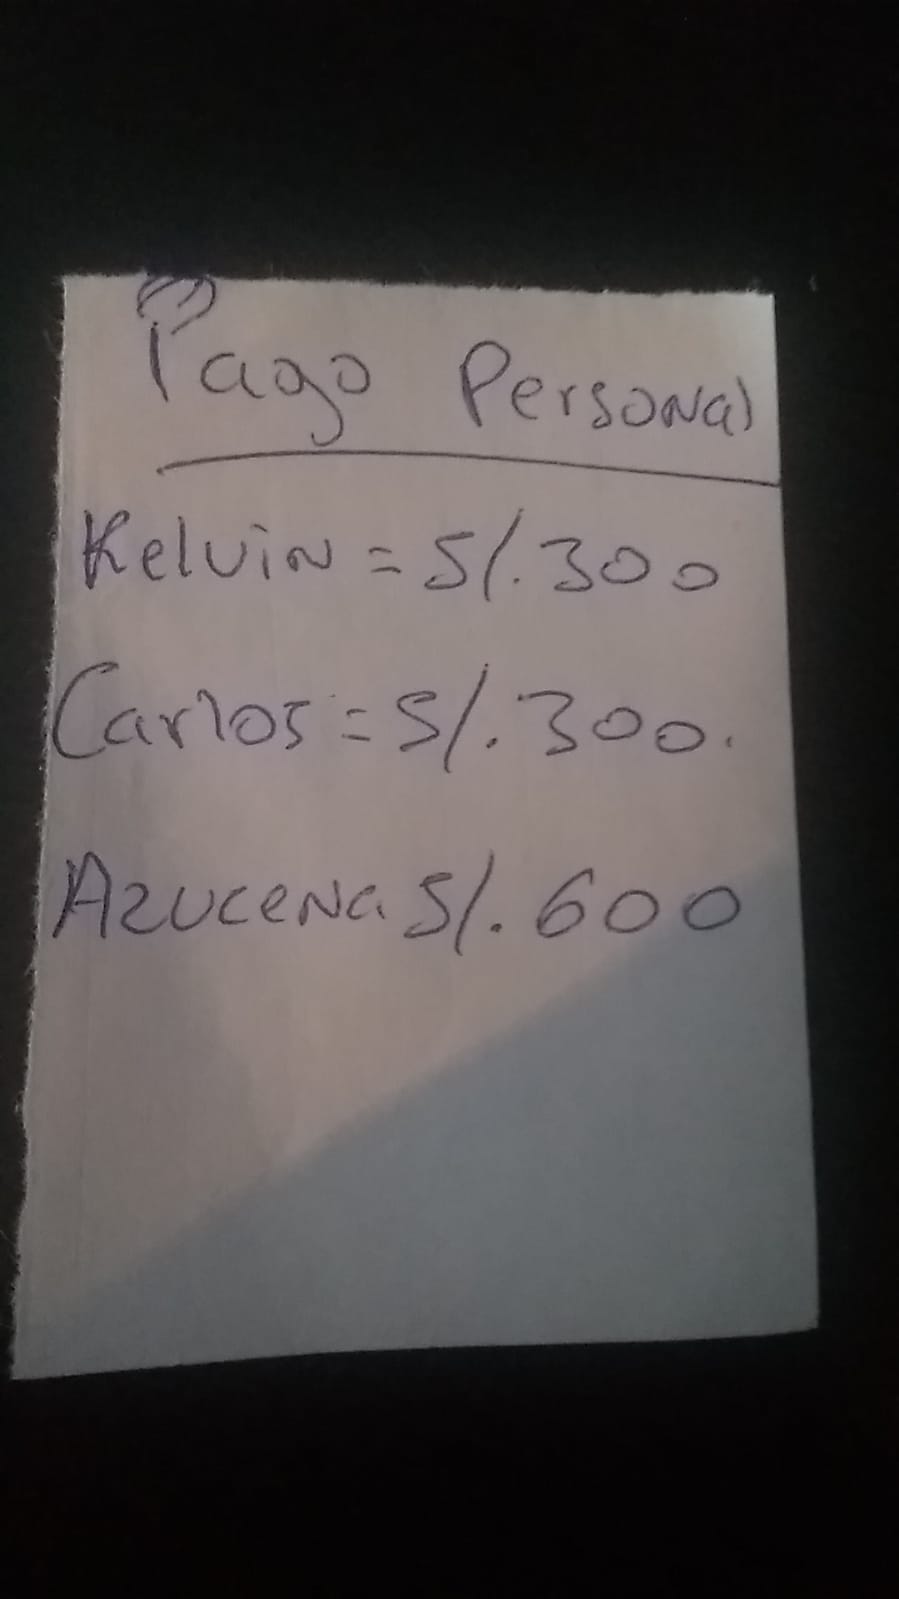 Pago Personal
Kelvin = S/. 300
Carlos = S/. 300.
Azucena S/. 600